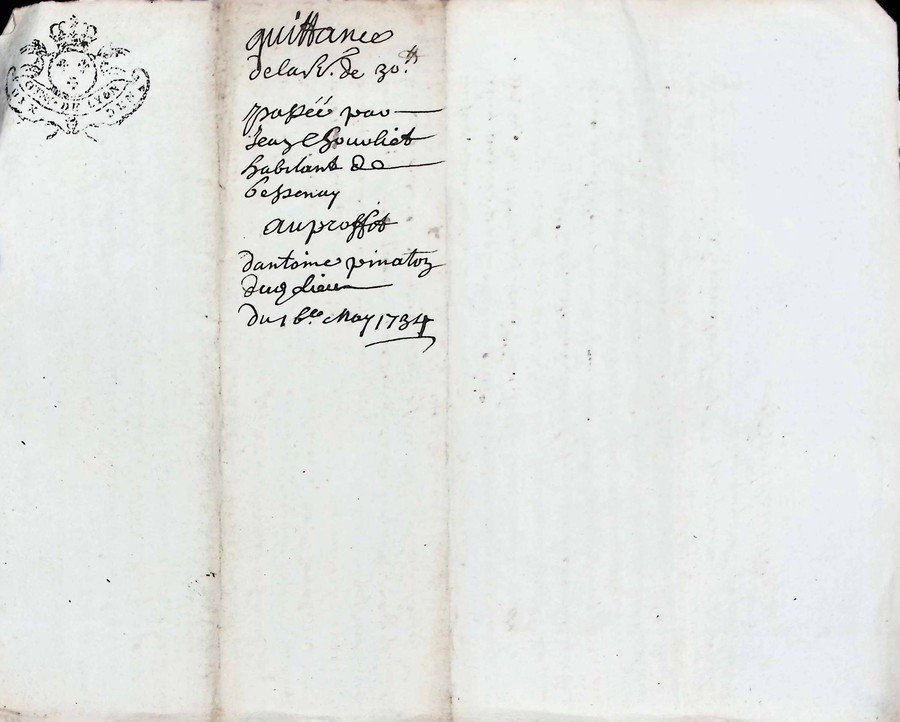 GEN. DE LYON
quittance
de la S.e de 30 tt
passéé par
Jean Chouvliet
habitant de
bessenay
au proffit
dantoine pinaton
dud lieu
du 16e May 1734